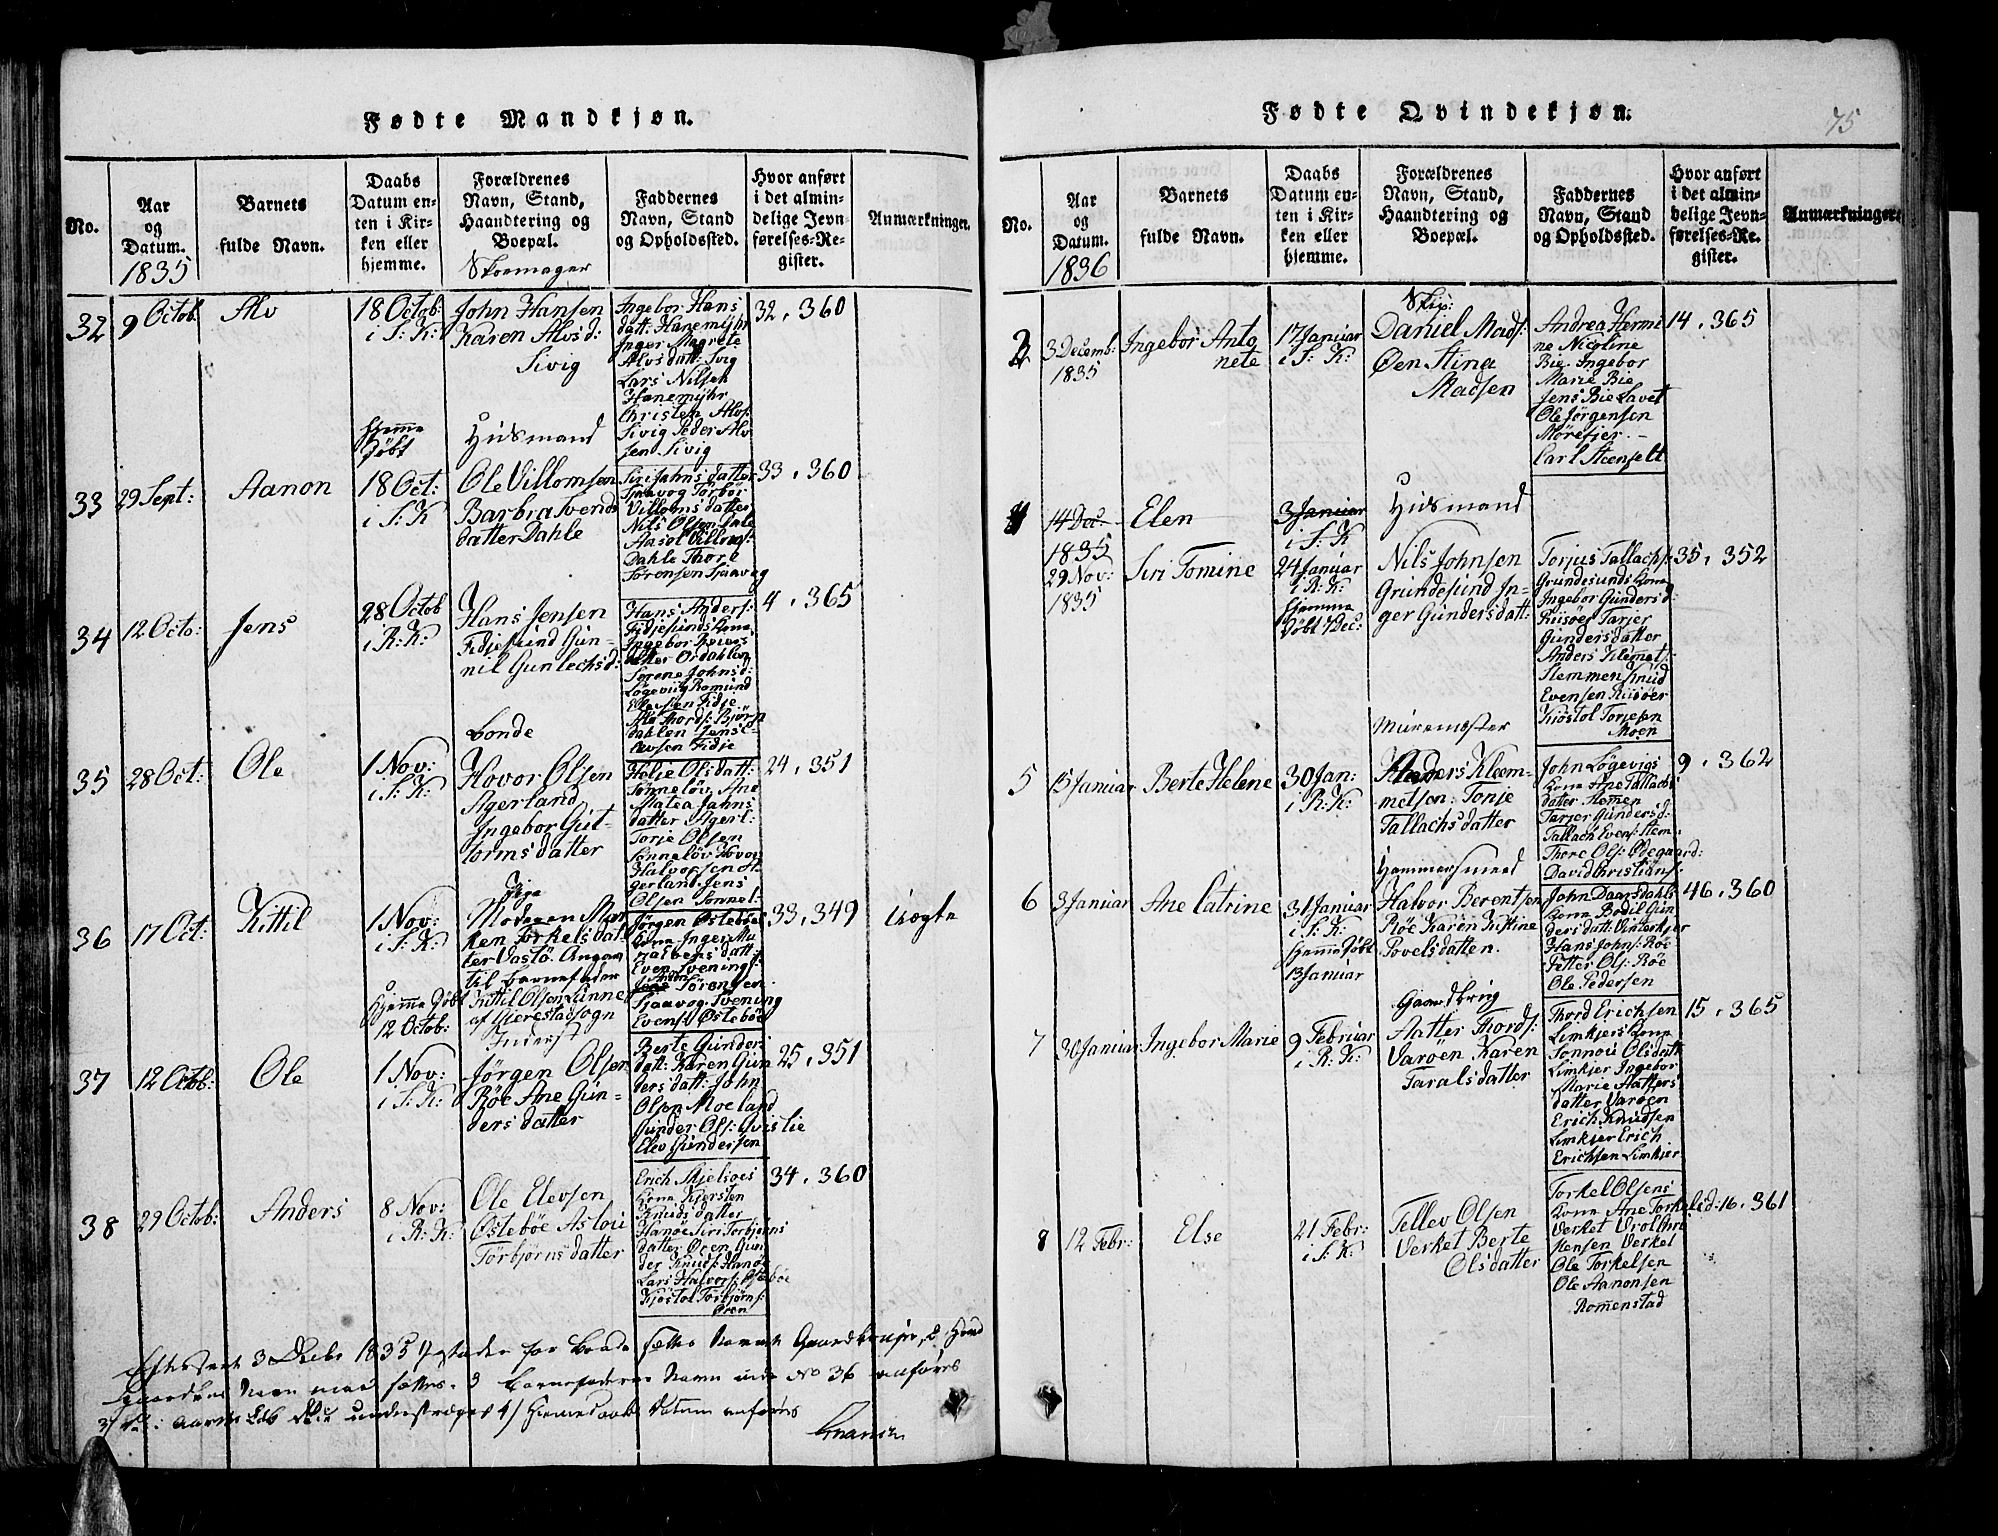 Fødte Mandkjøn.
No.
Aar
og
Datum.
1835
Barnets
fulde Navn.
Daabs
Datum en-
ten i Kir-
ken eller
hjemme.
Forældrenes
Navn, Stand,
Haandtering og
Boepæl.
Faddernes
Navn, Stand
og Opholdssted.
Hvor anført
i det almin-
delige Jevn-
førelses-Re-
gister.
Anmærkninger.
32
9 Octob
Alv
18 Octob:
i S: K:
Skoemager
John Hansen
Karen Alvsd:
Sivig
Ingebor Hans
datt: Hanemÿhr
Inger Magrete
Alvsdatt: Svig
Lars Nilsen
Hanemÿhr
Christen Alvs:
Sivig Peder Alv
sen Sivig
32, 360
33
29 Sept:
Aanon
Hjemme
Døbt
18 Oct:
i S: K
Huusmand
Ole Villomsen
Barbra Svends
datter Dahle
Siri Jahnsdatter
Sjaavog Torbor
Villomsdatter
Nils Olsen Dale
Aasol Villoms:
Dahle Thore
Sørensen Sjaavog
33, 360
34
12 Octo:
Jens
28 Octob
i R: K:
Hans Jensen
Fidjesund Gun-
nil Gunlechsd:
Hans Anders:
Fidjesunds Kone
Ingebor
datter Ordahlen
Sørene Johnsd:
Løgeviig Romund
Olessen Fidje
Thords: Bjørn
dahlen Jens E-
levsen Fidje
4, 365
35
28 Oct:
Ole
1 Nov:
i S: K:
Bonde
Hovor Olsen
Agerland
Ingebor Gut-
tormsdatter
Helje Olsdatt:
Sønneløv, Ane
Matea Jahns
datter Agerl:
Torje Olsen
Sønneløv Hovor
Halvorsen A-
gerland Jens
Olsen Sønnel:
24, 351
36
17 Oct:
Kittil
1 Nov:
i S: K:
Hjemme Døbt
12 Octob:
Pige
Moderen Mar
ken Torkelsdat
ter Vastø. Angav
til Barnefader
Kittil Olsen Lunne
af Hierestadsogn
Jørgen Østebøes
Kone Inger Ma
ralvensdatt:
Even Svenings:
Anon Sørensen
Sjaavog. Svening
Evens: Østebøe
33, 349
Uægte
37
12 Octob:
Ole
1 Nov:
i S: K:
Inderst
Jørgen Olsen
Røe Ane Gun-
dersdatter
Berte Gunder
datt: Karen Gun
dersdatt: John
Olsen Moeland
Gunder Ols: Qvislie
Elev Gundersen
25, 351
38
29 Octob:
Anders
8 Nov:
i R: K:
Ole Elevsen
Østebøe Aslou
Torbjørnsdatter
Erich Skjelsøes
Kone Kjersten
Knudsdatter
Hanøe Siri Torbjørns
datter Øren Gun
der Knuds: Hanø
Lars Halvors: Østebøe
Kjøstol Torbjørns:
Øren
34, 360
3 Decbr 1835
No 36 anføres
Datum anføres
Fødte Qvindekjøn.
75
No.
Aar
og
Datum.
1836
Barnets
fulde Navn.
Daabs
Datum en-
ten i Kir-
ken eller
hjemme.
Forældrenes
Navn, Stand,
Haandtering og
Boepæl.
Faddernes
Navn, Stand
og Opholdssted.
Hvor anført
i det almin-
delige Jevn-
førelses-Re-
gister.
Anmærkninger.
3 Decemb:
1835
Ingebor Anto
nete
17 Januar
i S: K:
Skip:
Daniel Mads:
Øen Stina
Madsen
Andrea Hermi
ne Nicoline
Bie. Ingebor
Marie Bie
Jens Bie Lavet
Ole Jørgensen
Mørefjer. -
Carl Steenselt
14, 365
4
14 Dec.
1835
29 Nov:
1835
Elen
Siri Tomine
3 Januar
i S: K
24 Januar
i R: K:
Hjemme
Døbt 7 Dec:
Huusmand
Nils Johnsen
Grundesund In-
ger Gundersdatt:
Torjus Tallachs:
Grundesunds Kone
Ingebor Gundersd:
Riisøer Tarjer
Gundersdatter
Anders Klemet:
Slemmen Knud
Evensen Riisøer
Kjøstol Torjesen
Moen
35, 352
5
15 Januar
Berte Helene
30 Jan:
i R: K:
Muremester
Anders Kleem-
metsen: Tonje
Tallachsdatter
John Løgevigs
Kone Ane Tallachs
datter
Tarjer Gundersd:
Tallach Evens: Slem
Thore Ols: Ødegaard:
David Christians:
9, 362
6
3 Januar
Ane Catrine
31 Januar
i S: K
Hjemme Døbt
13 Januar
Hammersmed
Halvor Berentsen
Røe Karen Kistine
Povelsdatten.
John Daarsdahls
Kone Bodil Gun
dersdatt: Vinterkjer
Hans Johns: Røe
Petter Ols: Røe
Ole Pedersen
46, 360
7
30 Januar
Ingebor Marie
9 Februar
i R: K:
Gaardbrug
Aatter Thords:
Varøen Karen
Taralsdatter
Thord Erichsen
Limkjers Kone
Sonnou Olsdatt
Limkjer Ingebor
Marie Aatters
datter Varøen
Erich Knudsen
Limkjer Erich
Erichsen Limkjer
15, 365
8
12 Febr:
Else
21 Febr:
i S: K:
Tellev Olsen
Verket Berte
Olsdatter
Torkel Olsens
Kone Ane Torkelsd:
Verket
Hensen Verket
Ole Torkelsen
Ole Aanonsen
Romenstad
16, 361